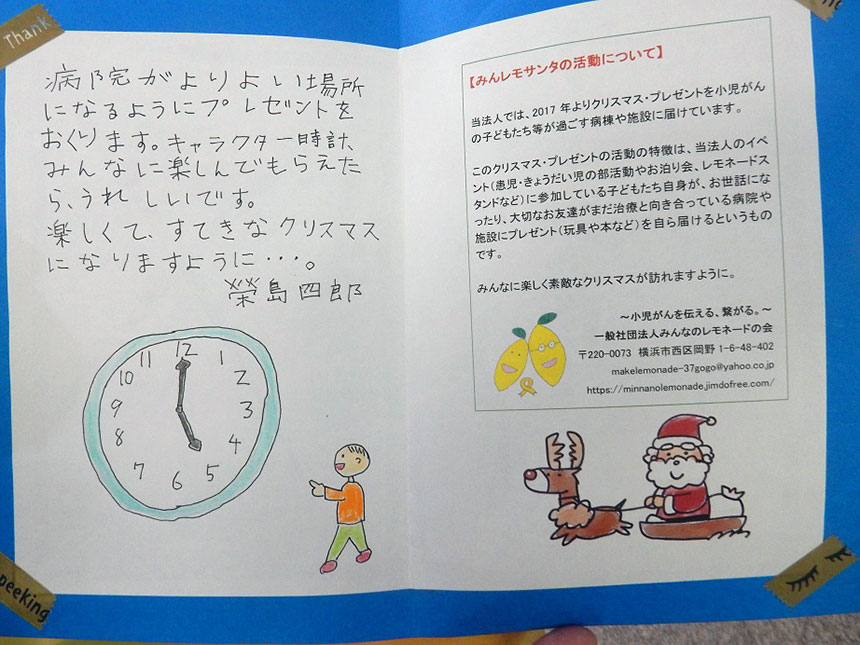 Thank
病院がよりよい場所
になるようにプレゼントを
おくります。キャラクター時計、
みんなに楽しんでもらえた
ら、うれしいです。
楽しくて、すてきなクリスマス
になりますように・・・。
榮島四郎
12
1
2
3
4
5
6
7
8
9
10
11
peeking
【みんレモサンタの活動について】
当法人では、2017 年よりクリスマス・プレゼントを小児がん
の子どもたち等が過ごす病棟や施設に届けています。
このクリスマス・プレゼントの活動の特徴は、当法人のイベ
ント(患児・きょうだい児の部活動やお泊り会、レモネードス
タンドなど)に参加している子どもたち自身が、お世話にな
ったり、大切なお友達がまだ治療と向き合っている病院や
施設にプレゼント(玩具や本など)を自ら届けるというもの
です。
みんなに楽しく素敵なクリスマスが訪れますように。
～小児がんを伝える、繋がる。～
一般社団法人みんなのレモネードの会
〒220-0073 横浜市西区岡野 1-6-48-402
makelemonade-37gogo@yahoo.co.jp
https://minnanolemonade.jimdofree.com/